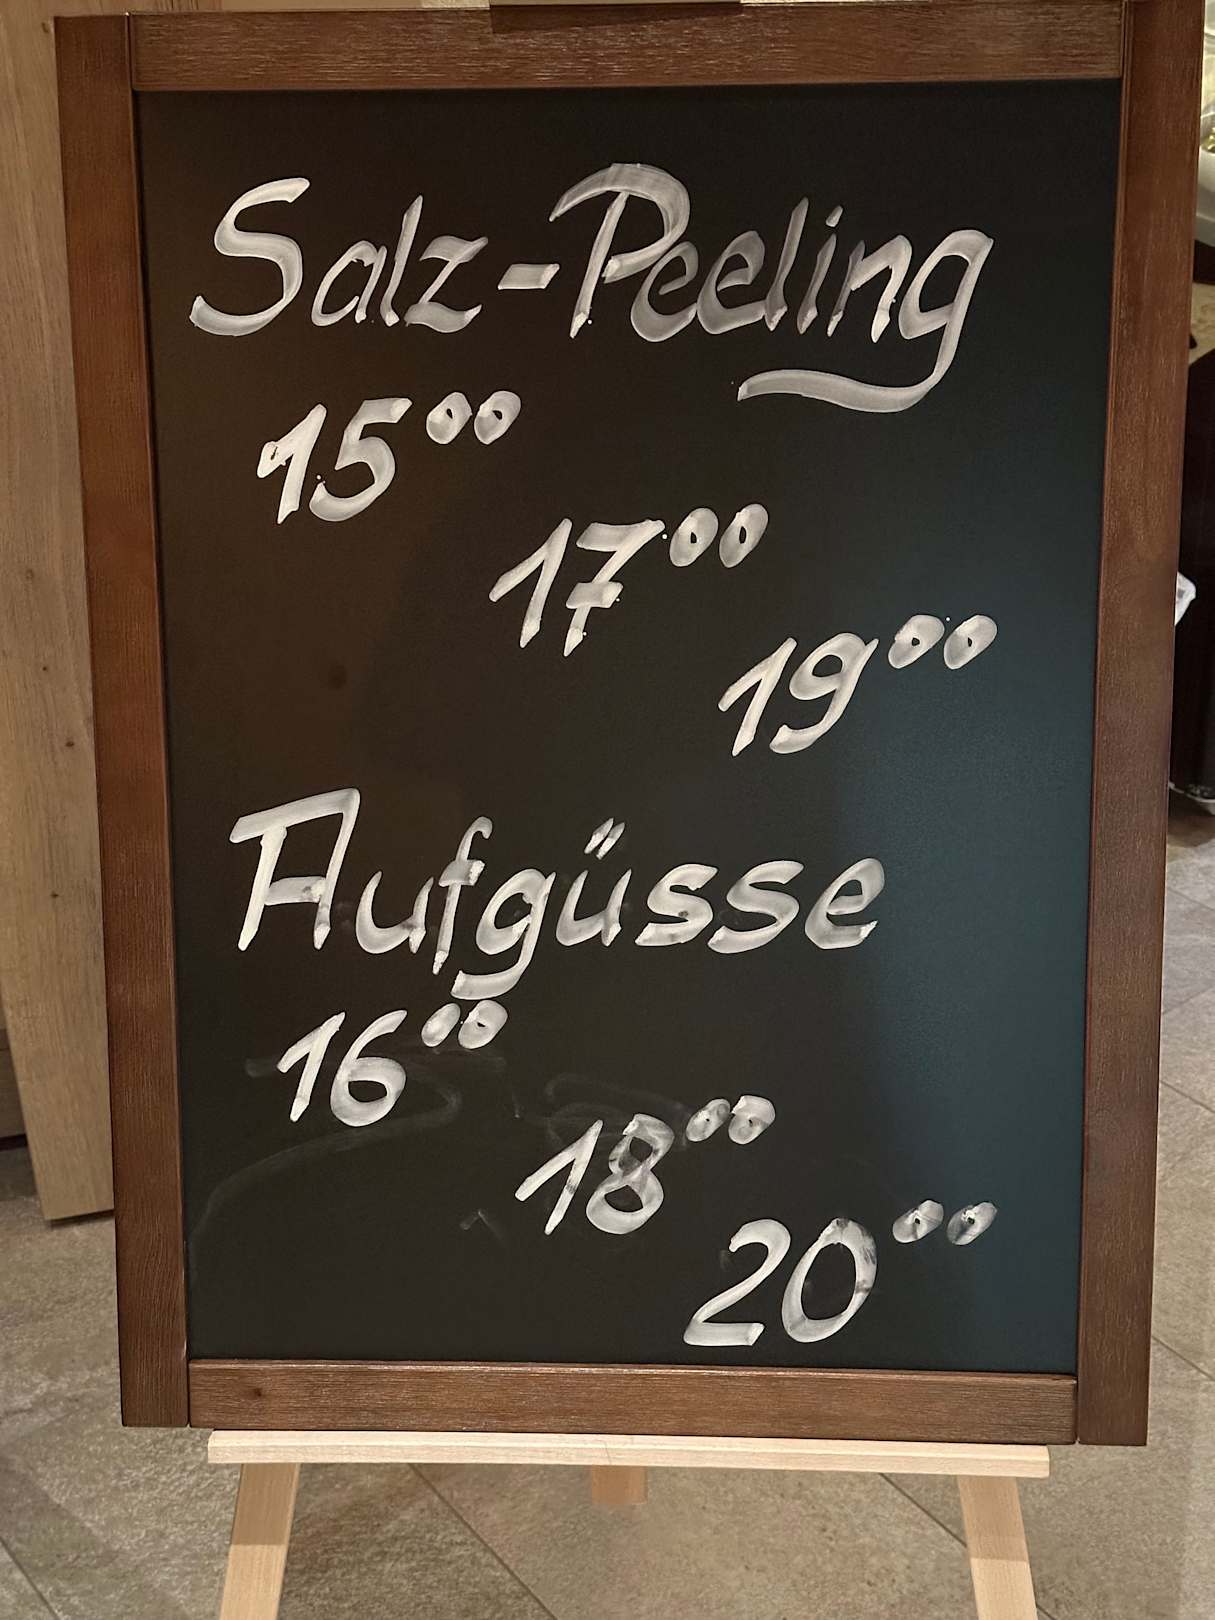 Salz-Peeling
15⁰⁰
17⁰⁰
19⁰⁰
Aufgüsse
16⁰⁰
18⁰⁰
20⁰⁰